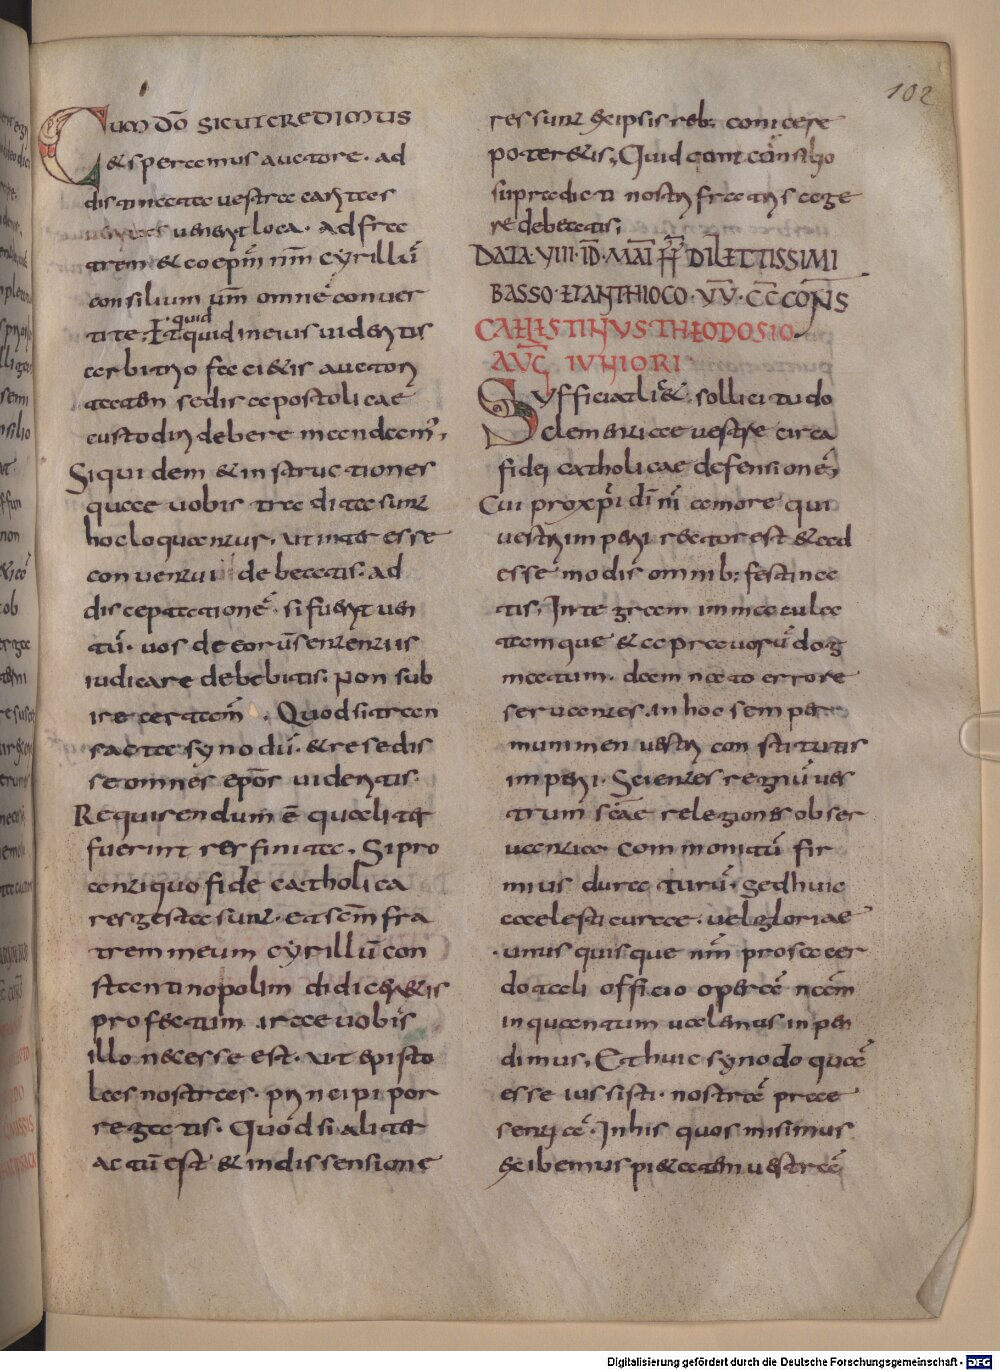 102
Cum dō sicut credimus
& speramus auctore· ad
distinatae vestrae caritas
veneritis venerit loca· ad fra
trem & coepm̄ nm̄ cyrillū
consilium ūm omnē conver
tite· Et quid
quid in eius videritis
arbitrio faciatis auctori
tatem sedis apostolicae
custodiri debere mandam̄,
Siquidem & instructiones
quae vobis traditae sunt
hoc loquantur· ut interesse
conventui debeatis· ad
disceptationē· si fuerit ven
tū· vos de eorū sententiis
iudicare debebitis· non sub
ire certam̄ · Quod si tran
sacta synodū· & resedis
se omnes epōs videritis·
Requirendum ē qualiter
fuerint res finitae· Si pro
antiquo fide catholica
res gestae sunt· et scm̄ fra
trem meum cyrillū con
stantinopolim didiceritis
profectum irae vobis
illo necesse est· ut episto
las nostras· principi por
regatis· Quod si aliter
actū est & in dissensione
res sunt & ipsis reb; conicere
poteritis, Quid cum consilio
supradicti nostri fratris age
re debeatis;
DATA·VIII·ID·MAI FF DILETTISSIMI
BASSO·ET ANTHIOCO·VV·CC CONS
CAELESTINUS·THEODOSIO·
AUG IUNIORI
Sufficiat lic& sollicitudo
clementiae vestrae circa
fidei catholicae defensionē,
Cui pro xpi di nī amore qui
vestri imperii rector est & ad
esse modis omnib; festina
tis, Integram inmacula
tamque & a pravorū dog
matum· damnato errore
servantes· in hoc semper
munimen vestri constitutis
imperii· Scientes regnū ves
trum scāe relegionis obser
vantia communitū fir
mius duraturū· sed huic
caelesti curae· vel gloriae
·unus quisque nm̄ pro sacer
dotali officio operā nam̄
in quantum valemus inpen
dimus, Et huic synodo quā
esse iussisti· nostrā prae
sentiā· In his quos misimus
exibemus pietatem vestrā
Digitalisierung gefördert durch die Deutsche Forschungsgemeinschaft - DFG